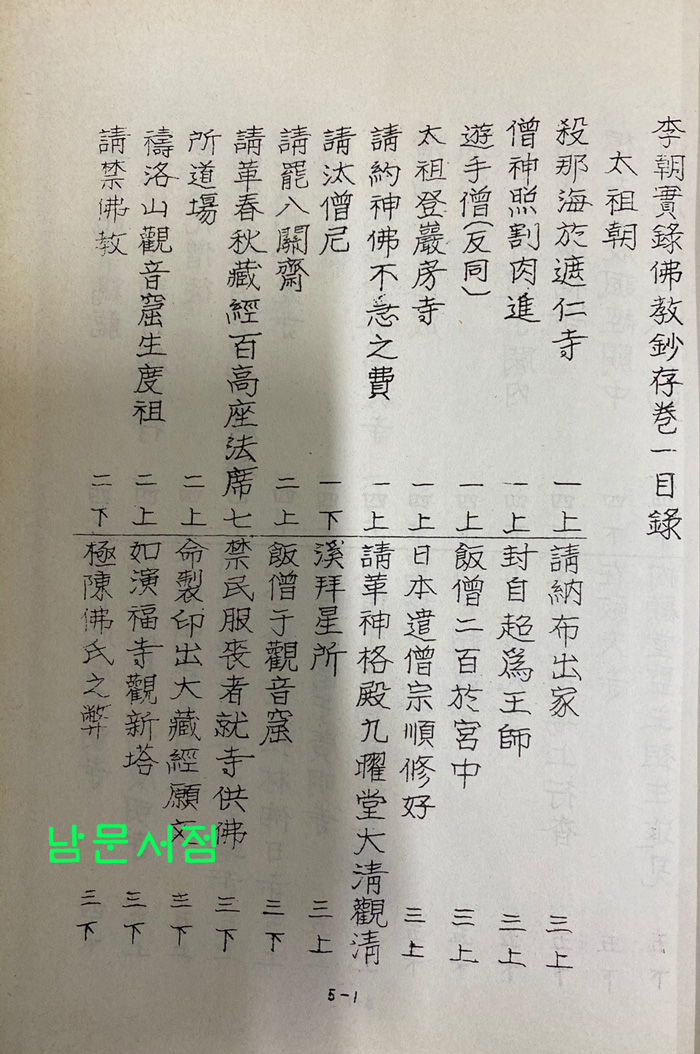 李朝實錄佛教鈔存卷一目錄
太祖朝
殺那海於遮仁寺 一上
僧神照割肉進 一上
遊手僧(反同) 一上
太祖登巖房寺 一上
請約神佛不急之費 一上
請汰僧尼 一下
請罷八關齋 二上
請革春秋藏經百高座法席七
所道場 二上
禱洛山觀音窟生度祖 二上
請禁佛教 二下
請納布出家 三上
封自超爲王師 三上
飯僧二百於宮中 三上
日本遣僧宗順修好 三上
請革神格殿九曜堂大清觀清
溪拜星所 三上
飯僧于觀音窟 三下
禁民服喪者就寺供佛 三下
命製印出大藏經願文 三下
如演福寺觀新塔 三下
極陳佛氏之弊 三下
남문서점
5-1